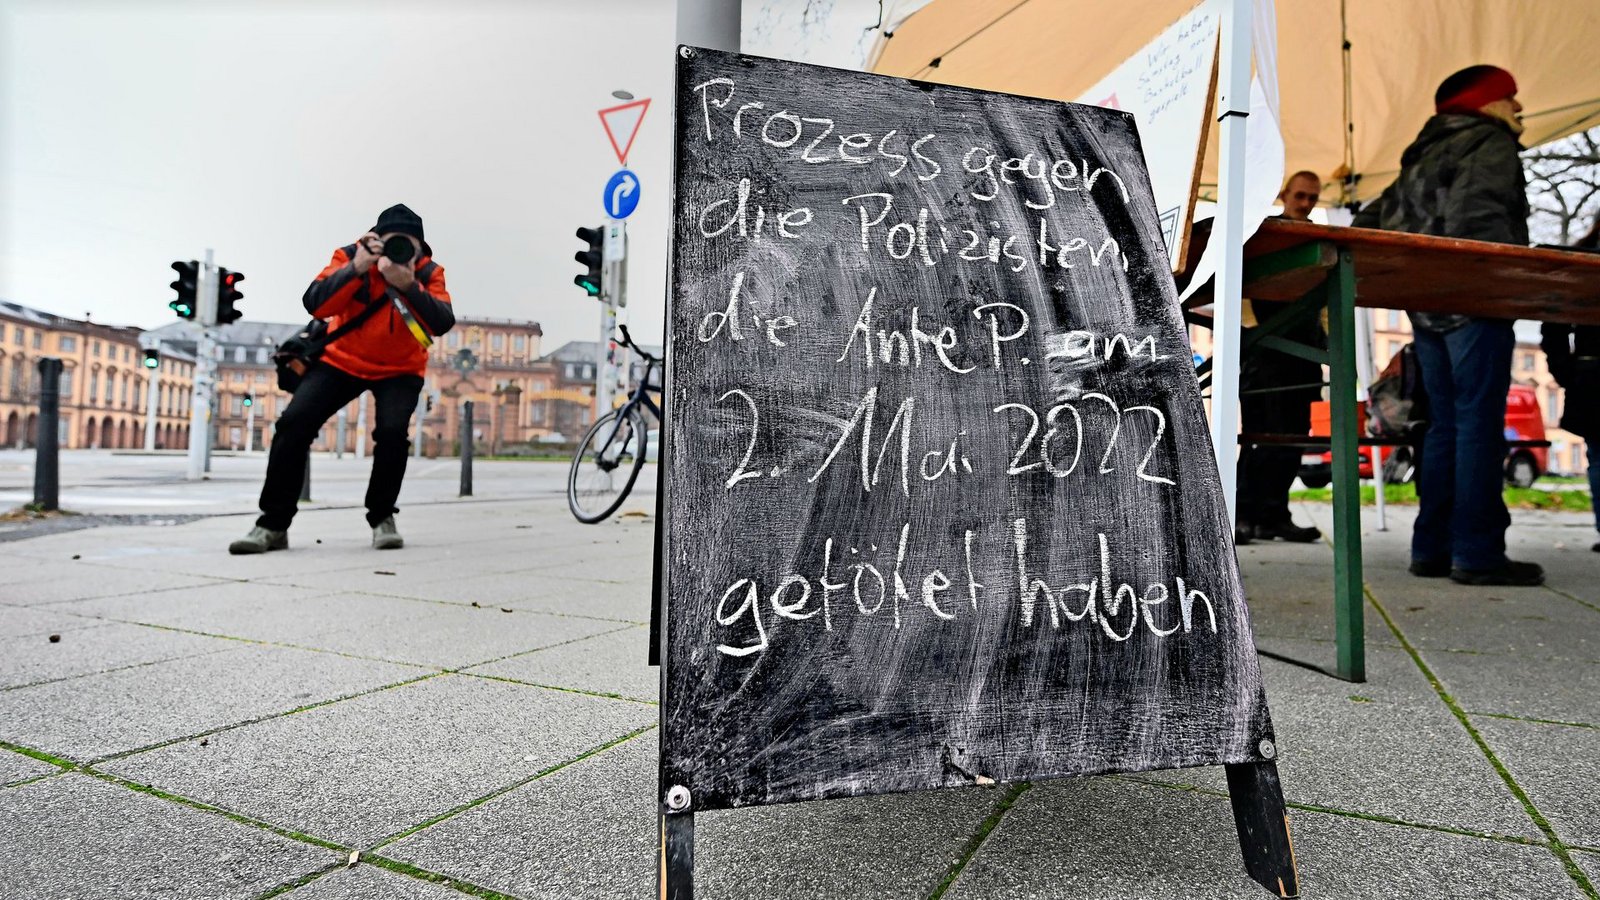 Prozess gegen
die Polizisten,
die Ante P. am
2. Mai 2022
getötet haben
Wir haben
Samstag noch
Basketball
gespielt